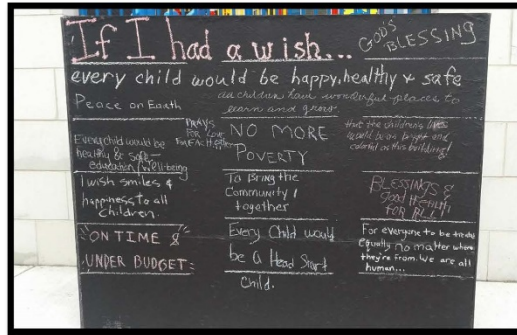 If I had a wish...
GOD'S
BLESSING
every child would be happy, healthy & safe
Peace on Earth
all children have wonderful places to
learn and grow
PRAYS
FOR LOVE
Every child would be
healthy & safe—
education/well-being
NO MORE
POVERTY
that the childrens lives
would be as bright and
colorful as this building!
I wish smiles &
happiness to all
Children.
To Bring the
Community
together
BLESSINGS &
good HEALTH
FOR ALL!
"ON TIME &
UNDER BUDGET"
Every Child would
be a Head Start
Child.
For everyone to be treated
equally no matter where
they're from. We are all
human...